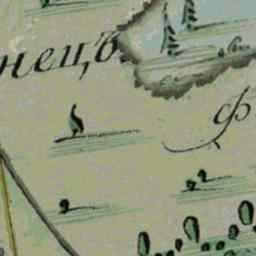 нецъ
Ф